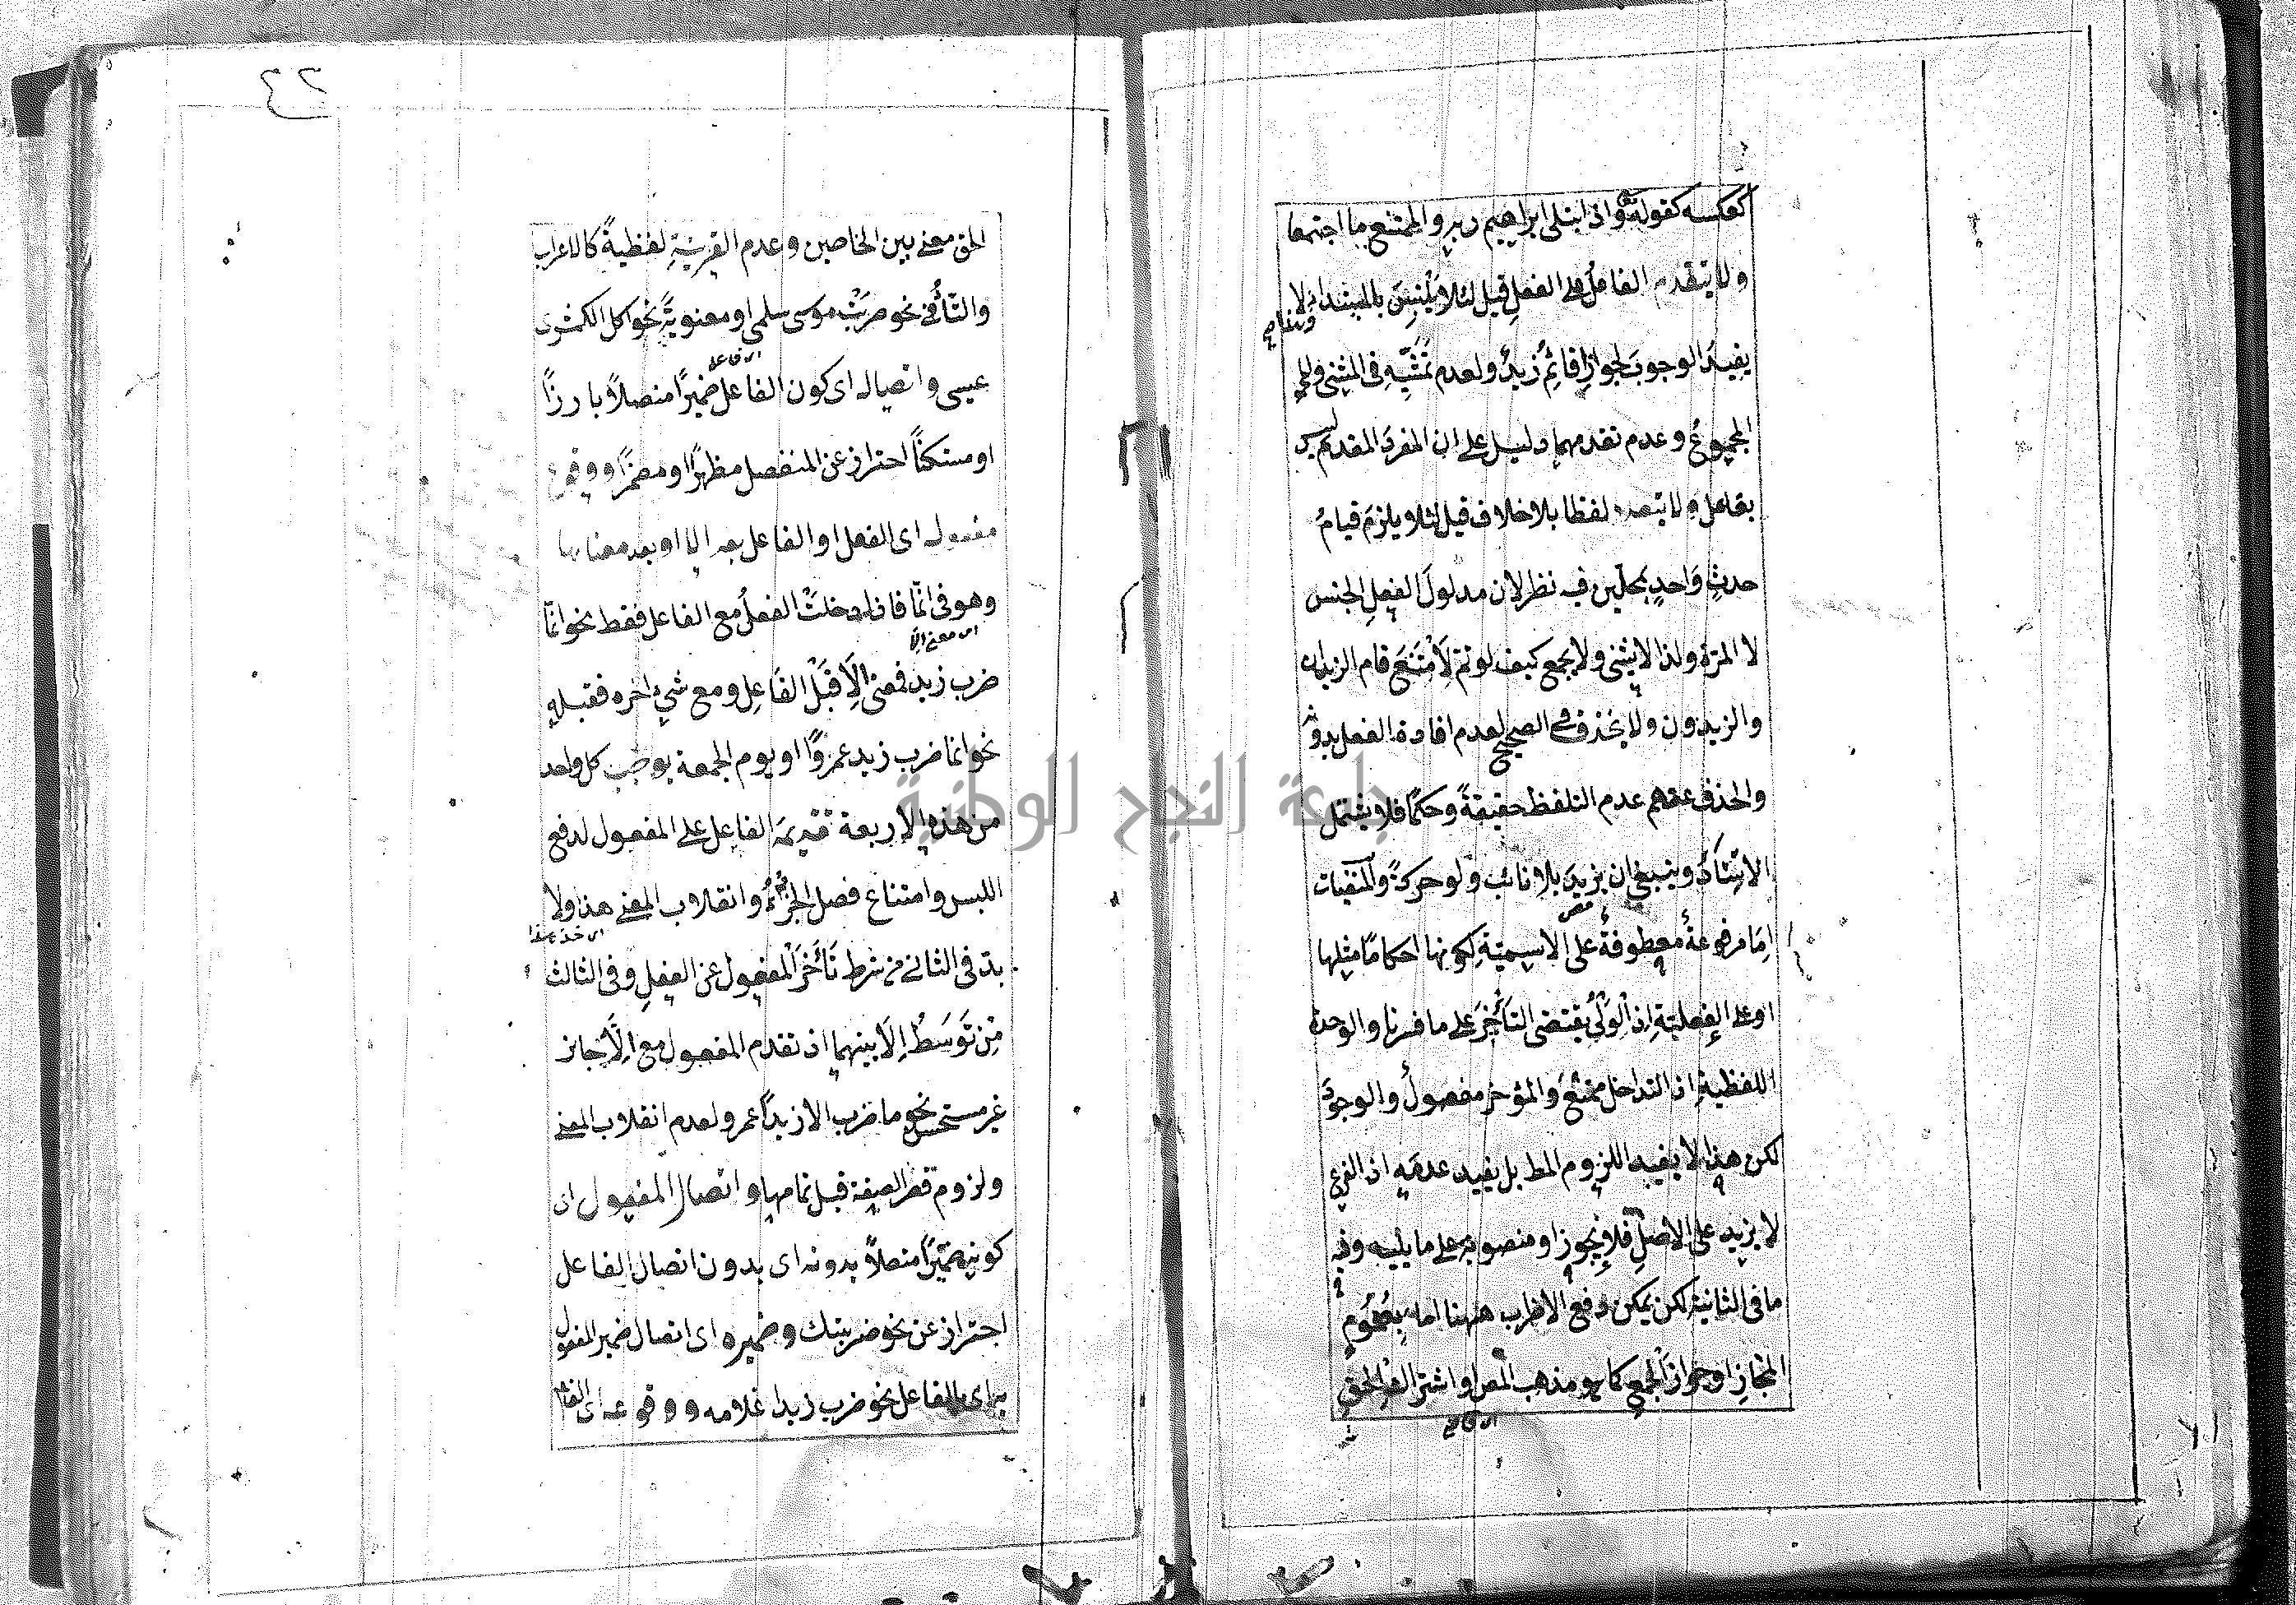 كعكسه كقوله تع واذ ابتلى ابراهيم ربه والممتنع ما اجتمعا
ولا يتقدم الفاعل على الفعل قيل لئلا يلتبس بالمبتدا لا
يفيد الوجوب لجواز اقائم زيد ولعدم تمشيه في المثنى و
المجموع وعدم تقدمهما دليل على ان المفرد المقدم ليس
بفاعل ولا يتعدد لفظا بلا خلاف قيل لئلا يلزم قيام
حدث واحد بمحلين فيه نظر لان مدلول الفعل الجنس
لا المرة ولذا لا يثنى ولا يجمع كيف لو تم لامتنع قام الزيدان
والزيدون ولا يحذف في الصحيح لعدم افادة الفعل بدونه
والحذف عندهم عدم التلفظ حقيقة وحكما فلا يشتمل
الاستتار وينبغي ان يزيد بلا نائب ولو حركة والمنفيات
اما مرفوعة معطوفة على الاسمية لكونها احكاما مثلها
او على الفعلية اذ الولي يقتضى التأخر على ما فسرنا والوحدة
اللفظية اذ التداخل ممتنع والمؤخر مفصول والوجود
لكن هذا لا يفيد اللزوم المط بل يفيد عدمه اذ الفرع
لا يزيد على الاصل فلا يجوز او منصوبة على ما يليه وفيه
ما في الثانية لكن يمكن دفع الاضراب ههنا اما بعموم
المجاز او جواز الجمع كما هو مذهب المص او اشتراك
الحق معنى بين الخاصين وعدم القرينة لفظية كالاعراب
والتاء في نحو ضربت موسى سلمى او معنوية نحو اكل الكمثرى
عيسى واتصاله اى كون الفاعل ضميرا متصلا بارزا
او مستكنا احتراز عن المنفصل مظهرا او مضمرا ووقوع
مفعوله اى الفعل او الفاعل بعد الا او بعد معناها
وهو في انما فاذا دخلت الفعل مع الفاعل فقط نحو انما
اى معنى الا
ضرب زيد فمعنى الا قبل الفاعل ومع شيء اخره فقبله
نحو انما ضرب زيد عمروا او يوم الجمعة يوجب كل واحد
من هذه الاربعة تقديم الفاعل على المفعول لدفع
اللبس وامتناع فصل الجزء وانقلاب المعنى هذا ولا
بد في الثاني من شرط تأخر المفعول عن الفعل وفي الثالث
من توسط الا بينهما اذ تقدم المفعول مع الا جائز
غير مستحسن نحو ما ضرب الا زيدا عمرو لعدم انقلاب المعنى
ولزوم قصر الصفة قبل تمامها واتصال المفعول اى
كونه ضميرا متصلا بدونه اى بدون اتصال الفاعل
احتراز عن نحو ضربتك وضميره اى اتصال ضمير المفعول
به اى بالفاعل نحو ضرب زيدا غلامه ووقوعه اى الفاعل
جامعة النجاح الوطنية